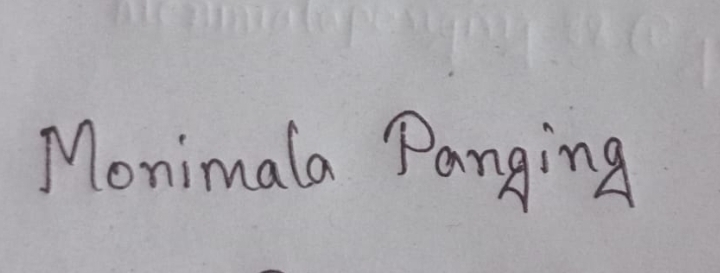 Monimala Panging